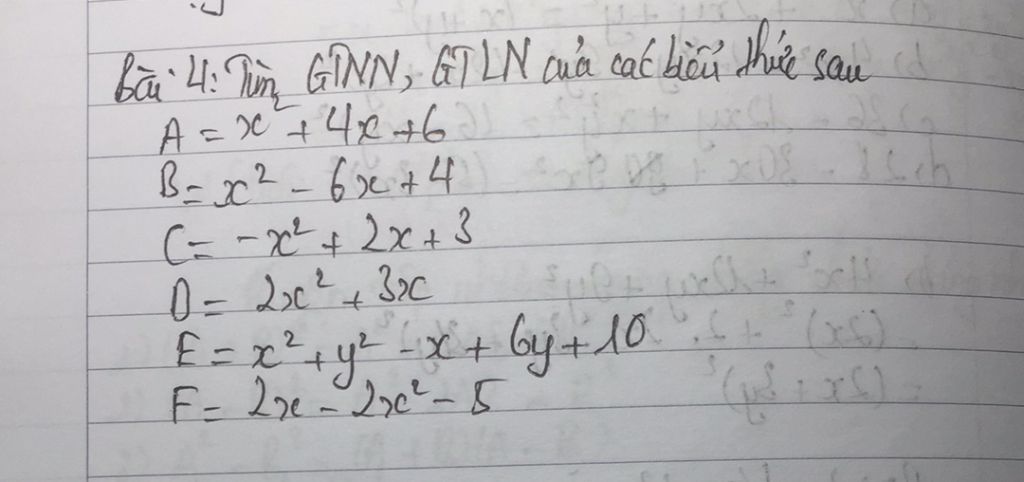 Bài 4: Tìm GTNN, GTLN của các biểu thức sau
A = x² + 4x + 6
B = x² - 6x + 4
C = -x² + 2x + 3
D = 2x² + 3x
E = x² + y² - x + 6y + 10
F = 2x - 2x² - 5